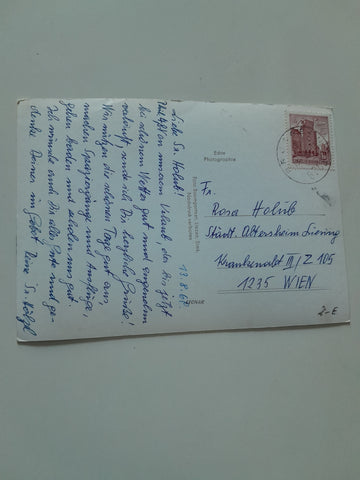 Liebe Sr. Holub!
Und ist unserem Urlaub der bis jetzt
bei schönem Wetter gut und angenehm
verläuft, sende ich Dir herzliche Grüße!
Wir nützen die schönen Tage gut aus,
machen Spaziergänge und Ausflüge,
gehen baden und erholen uns gut.
Ich wünsche auch Dir alles Gute und ge-
denke Deiner im Gebet. Deine Sr.
19.8.69
Echte
Photographie
Nachdruck verboten
Fr.
Rosa Holub
Städt. Altersheim Liesing
Krankenabt. III / Z 105
1235 WIEN
2-€